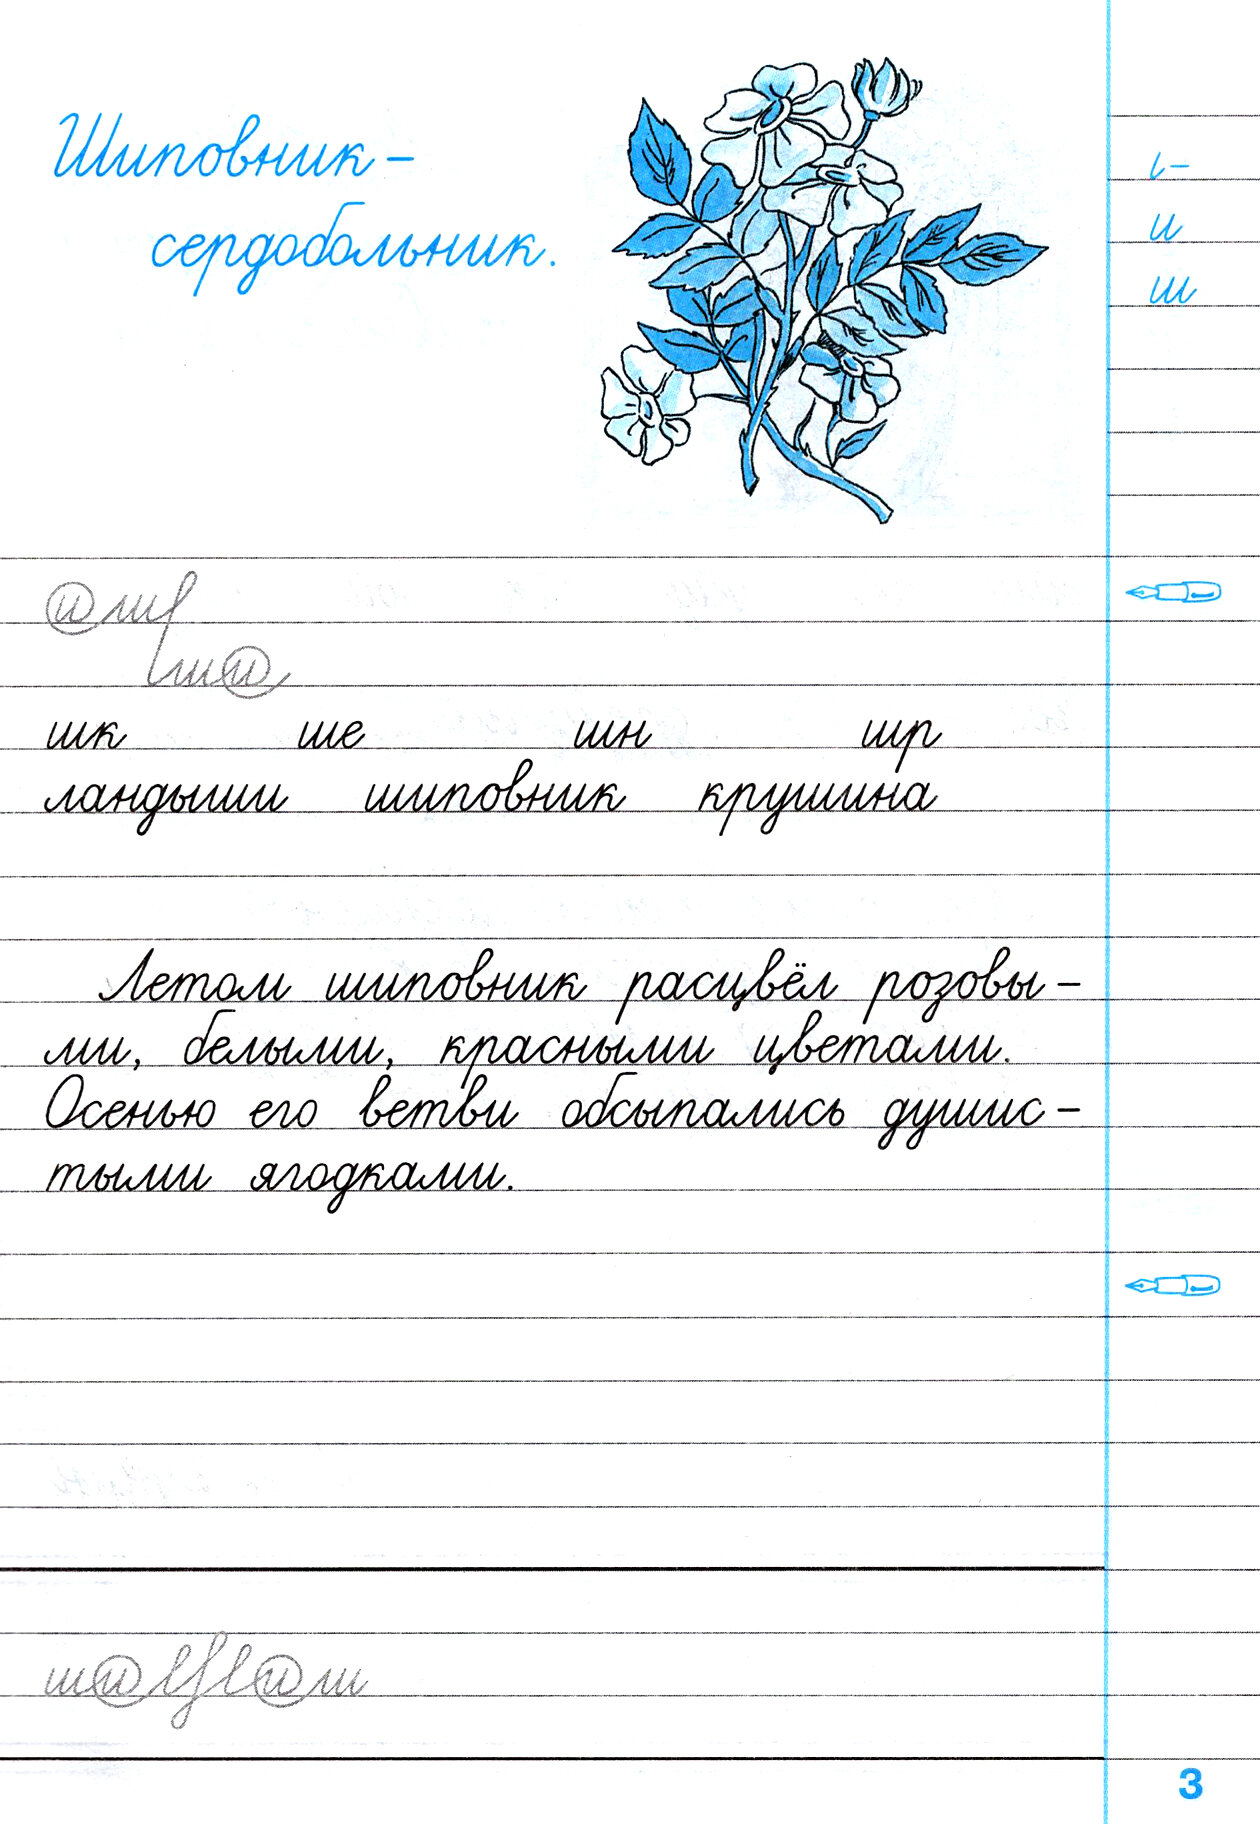 Шиповник –
сердобольник.
и
ш
шк ше шн шр
ландыши шиповник крушина
Летом шиповник расцвёл розовы –
ми, белыми, красными цветами.
Осенью его ветви обсыпались душис –
тыми ягодками.
3